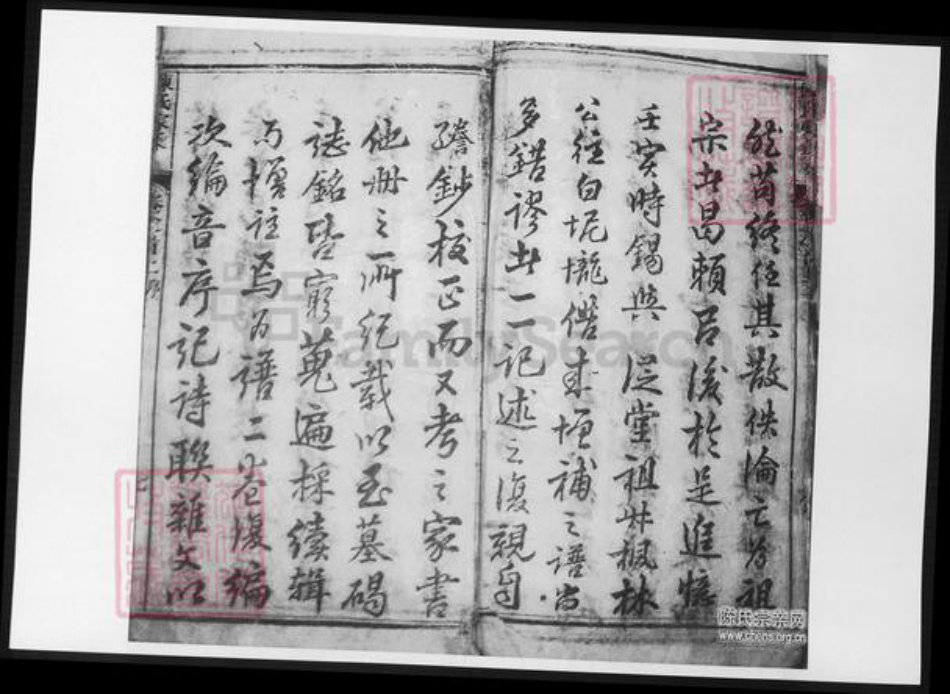 能苟終任其散佚淪亡為祖
宗者曷賴呂後於是進
壬寅時錫與從堂祖井楓林
公往白坭壠借來增補之譜尚
多錯謬者一一記述之復親自
謄鈔校正而又考之家書
他冊之所紀載以至墓碣
誌銘皆窮蒐遍採續輯
而增註焉為譜二卷復編
次綸音序記詩聯雜文以
FamilySearch
陈氏宗亲网
www.chens.org.cn